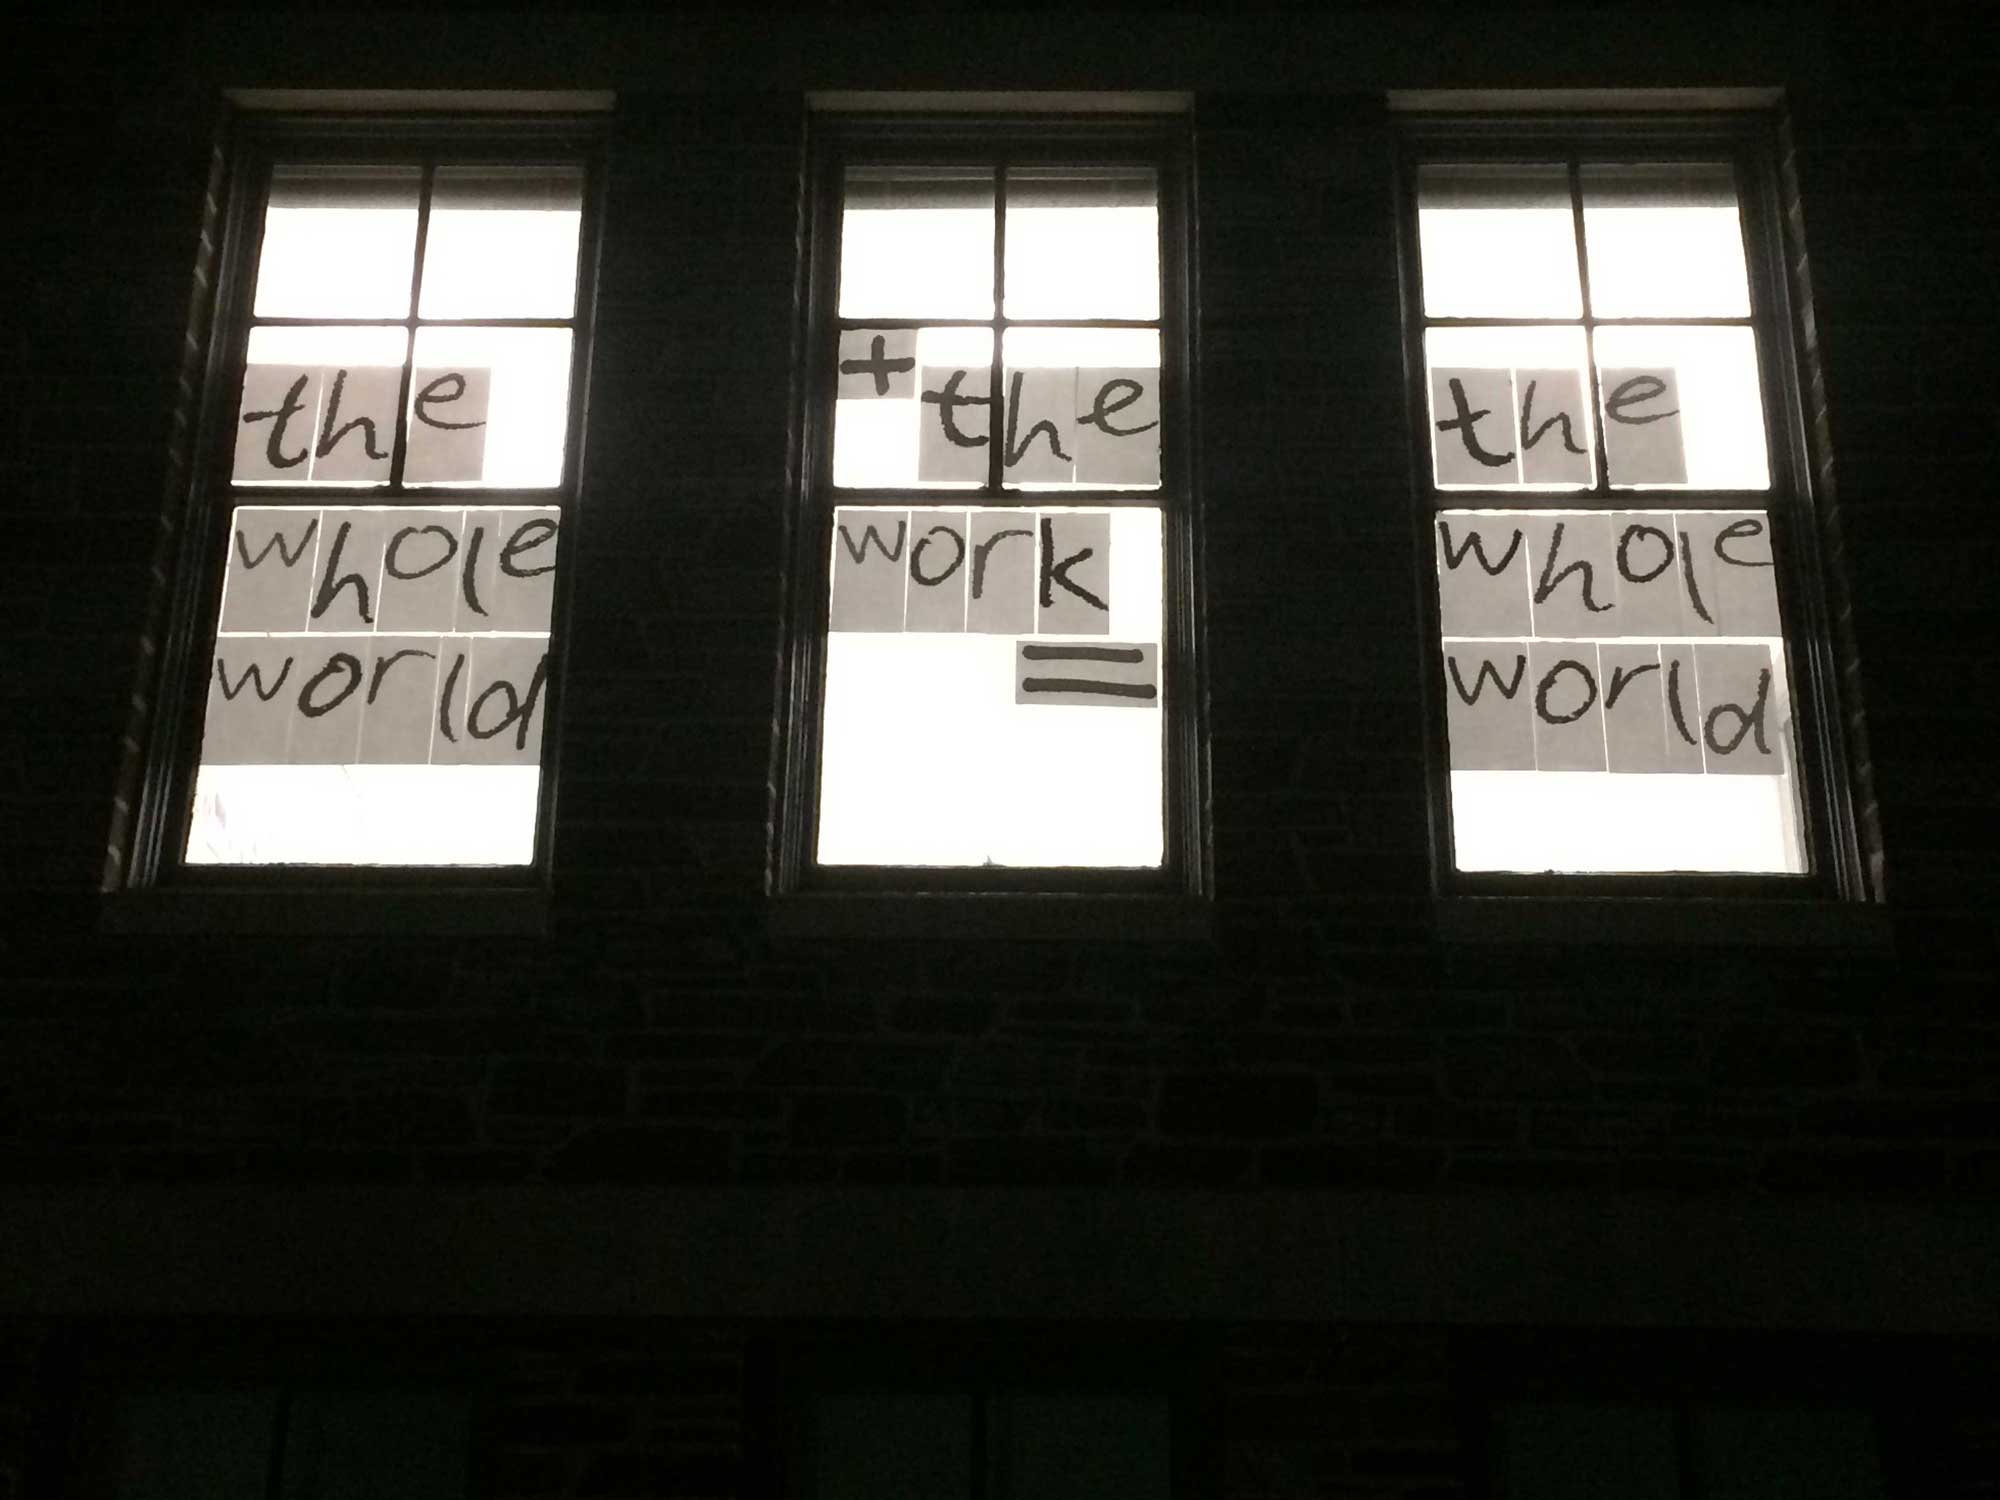 the
whole
world
+ the
work
=
the
whole
world